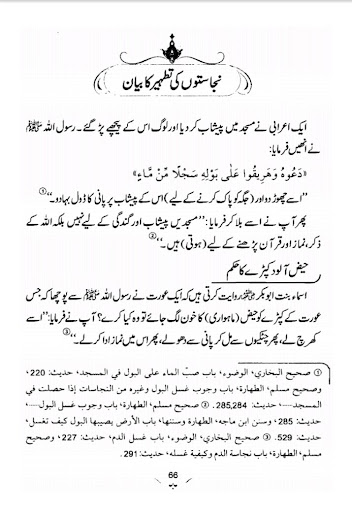 نجاستوں کی تطہیر کا بیان
ایک اعرابی نے مسجد میں پیشاب کر دیا اور لوگ اس کے پیچھے پڑ گئے۔ رسول اللہ ﷺ
نے انھیں فرمایا:
«دَعُوهُ وَهَرِيقُوا عَلٰى بَوْلِهِ سَجْلًا مِّنْ مَّاءٍ»
’’اسے چھوڑ دو اور (جگہ کو پاک کرنے کے لیے) اس کے پیشاب پر پانی کا ڈول بہا دو۔‘‘①
پھر آپ نے اسے بلا کر فرمایا: ’’مسجدیں پیشاب اور گندگی کے لیے نہیں بلکہ اللہ کے
ذکر، نماز اور قرآن پڑھنے کے لیے (ہوتی) ہیں۔‘‘②
حیض آلود کپڑے کا حکم
اسماء بنت ابوبکر روایت کرتی ہیں کہ ایک عورت نے رسول اللہ ﷺ سے پوچھا کہ جس
عورت کے کپڑے کو حیض (ماہواری) کا خون لگ جائے تو وہ کیا کرے؟ آپ نے فرمایا: ’’اسے
کھرچ لے، پھر چٹکیوں سے مل کر پانی سے دھولے، پھر اس میں نماز ادا کر لے۔‘‘③
① صحیح البخاري، الوضوء، باب صبّ الماء على البول في المسجد، حدیث: 220،
وصحیح مسلم، الطهارة، باب وجوب غسل البول وغيره من النجاسات إذا حصلت في
المسجد.....، حدیث: 285,284. ② صحیح مسلم، الطهارة، باب وجوب غسل البول.....،
حدیث: 285، وسنن ابن ماجه، الطهارة وسننها، باب الأرض يصيبها البول كيف تغسل،
حدیث: 529. ③ صحیح البخاري، الوضوء، باب غسل الدم، حدیث: 227، وصحیح
مسلم، الطهارة، باب نجاسة الدم وكيفية غسله، حدیث: 291.
66